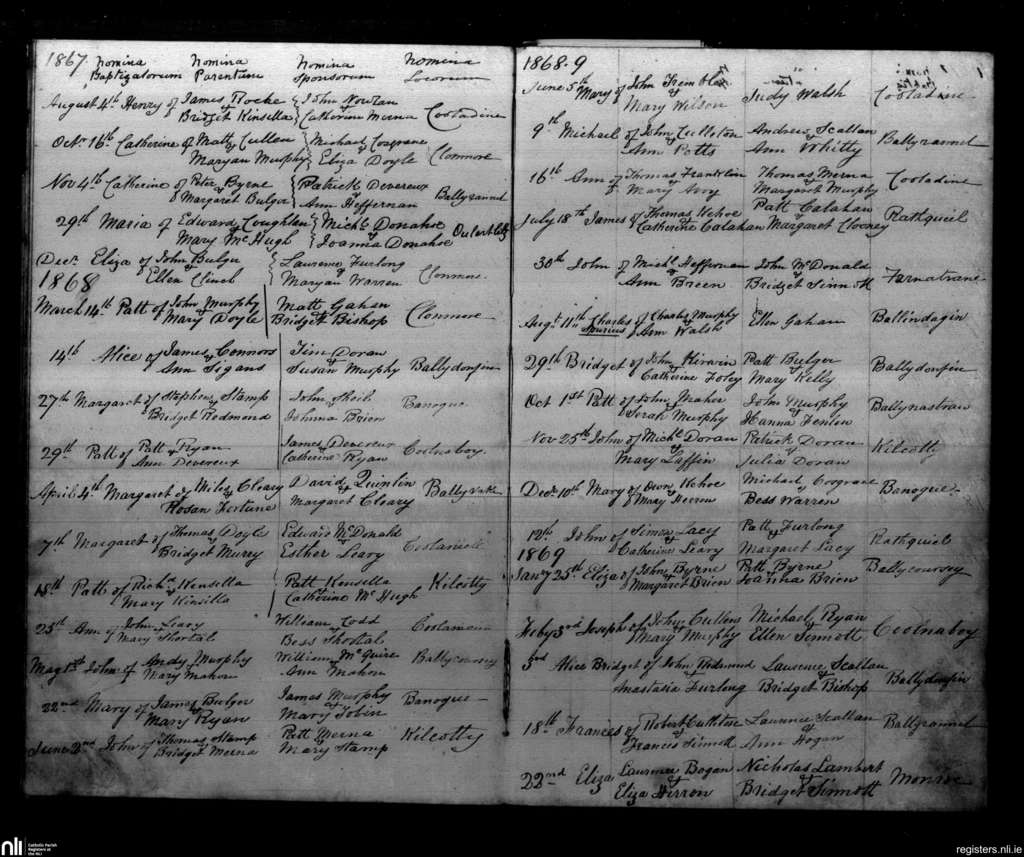 1867 Nomina Nomina Nomina Nomina
Baptizatorum Parentum Sponsorum Locorum
August 4th Henry of James Roche John Nowlan
& Bridget Kinsella Catherine Merna Cooladine
Octr. 16th Catherine of Matt Cullen Michael Cosgrave
& Maryan Murphy Eliza Doyle Clonmore
Nov 4th Catherine of Peter Byrne Patrick Devereux
& Margaret Bulger Ann Heffernan Ballyrannel
29th Maria of Edward Coughlan Michl. Donahoe Oulart
& Mary McHugh Joanna Donahoe
Decr. Eliza of John Bulger Laurence Furlong
& Ellen Clinch Maryan Warren Clonmore
1868
March 14th Patt of John Murphy Matt Gahan
& Mary Doyle Bridget Bishop Clonmore
14th Alice of James Connors Jim Doran
& Ann Sigans Susan Murphy Ballydonfin
27th Margaret of Stephen Stamp John Sheil Banogue
& Bridget Redmond Johnna Brien
29th Patt of Patt Ryan James Devereux Coolnaboy
& Ann Devereux Catherine Ryan
April 4th Margaret of Miles Cleary David Quinlin
& Rosan Fortune Margaret Cleary
7th Margaret of Thomas Doyle Edward McDonald
& Bridget Murrey Esther Leary
18th Patt of Richd. Kensella Patt Kensella Kilcotty
& Mary Kinsella Catherine McHugh
25th Ann of John Leary William Todd
& Mary Shortal Bess Shortal
May 1st John of Andy Murphy William McGuire Ballycoursey
& Mary Mahon Ann Mahon
22nd Mary of James Bulger James Murphy Banogue
& Mary Ryan Mary Tobin
June 2nd John of Thomas Stamp Patt Merna Kilcotty
& Bridget Merna Mary Stamp
1868-9
June 5th Mary of John
& Mary Wilson Judy Walsh Cooladine
9th Michael of John Culleton Andrew Scallan
& Ann Potts Ann Whitty Ballyrannel
16th Ann of Thomas Franklin Thomas Merna Cooladine
& Mary Margaret Murphy
July 18th James of Thomas Kehoe Patt Calahan Rathquiel
& Catherine Calahan Margaret Clooney
30th John of Michl. Heffernan John McDonald
& Ann Breen Bridget Sinnott
Augt. 11th Charles of Charles Murphy
Spurius & Ann Walsh Ellen Gahan Ballindagin
29th Bridget of John Kirwin Patt Bulger Ballydonfin
& Catherine Foley Mary Kelly
Oct 1st Patt of John Maher John Murphy Ballynastran
& Sarah Murphy Hanna Fenlon
Nov 25th John of Michl. Doran Patrick Doran Kilcotty
& Mary Laffin Julia Doran
Decr. 10th Mary of Own Kehoe Michael Cosgrave Banogue
& Mary Herron Bess Warren
12th John of Simon Lacy Patt Furlong Rathquiel
& Catherine Leary Margaret Lacy
1869
Jany 25th Eliza of John Byrne Patt Byrne Ballycoursey
& Margaret Brien Joanna Brien
Feby 3rd Joseph of John Cullens Michael Ryan
& Mary Murphy Ellen Sinnott Coolnaboy
3rd Alice Bridget of John Redmond Laurence Scallan
& Anastasia Furlong Bridget Bishop Ballydonfin
18th Francis of Robert Laurence Scallan Ballyrannel
& Francis Sinnott Ann Hogan
22nd Eliza Laurence Bogan Nicholas Lambert
& Eliza Herron Bridget Sinnott
nli Catholic Parish
Registers at
the NLI
registers.nli.ie